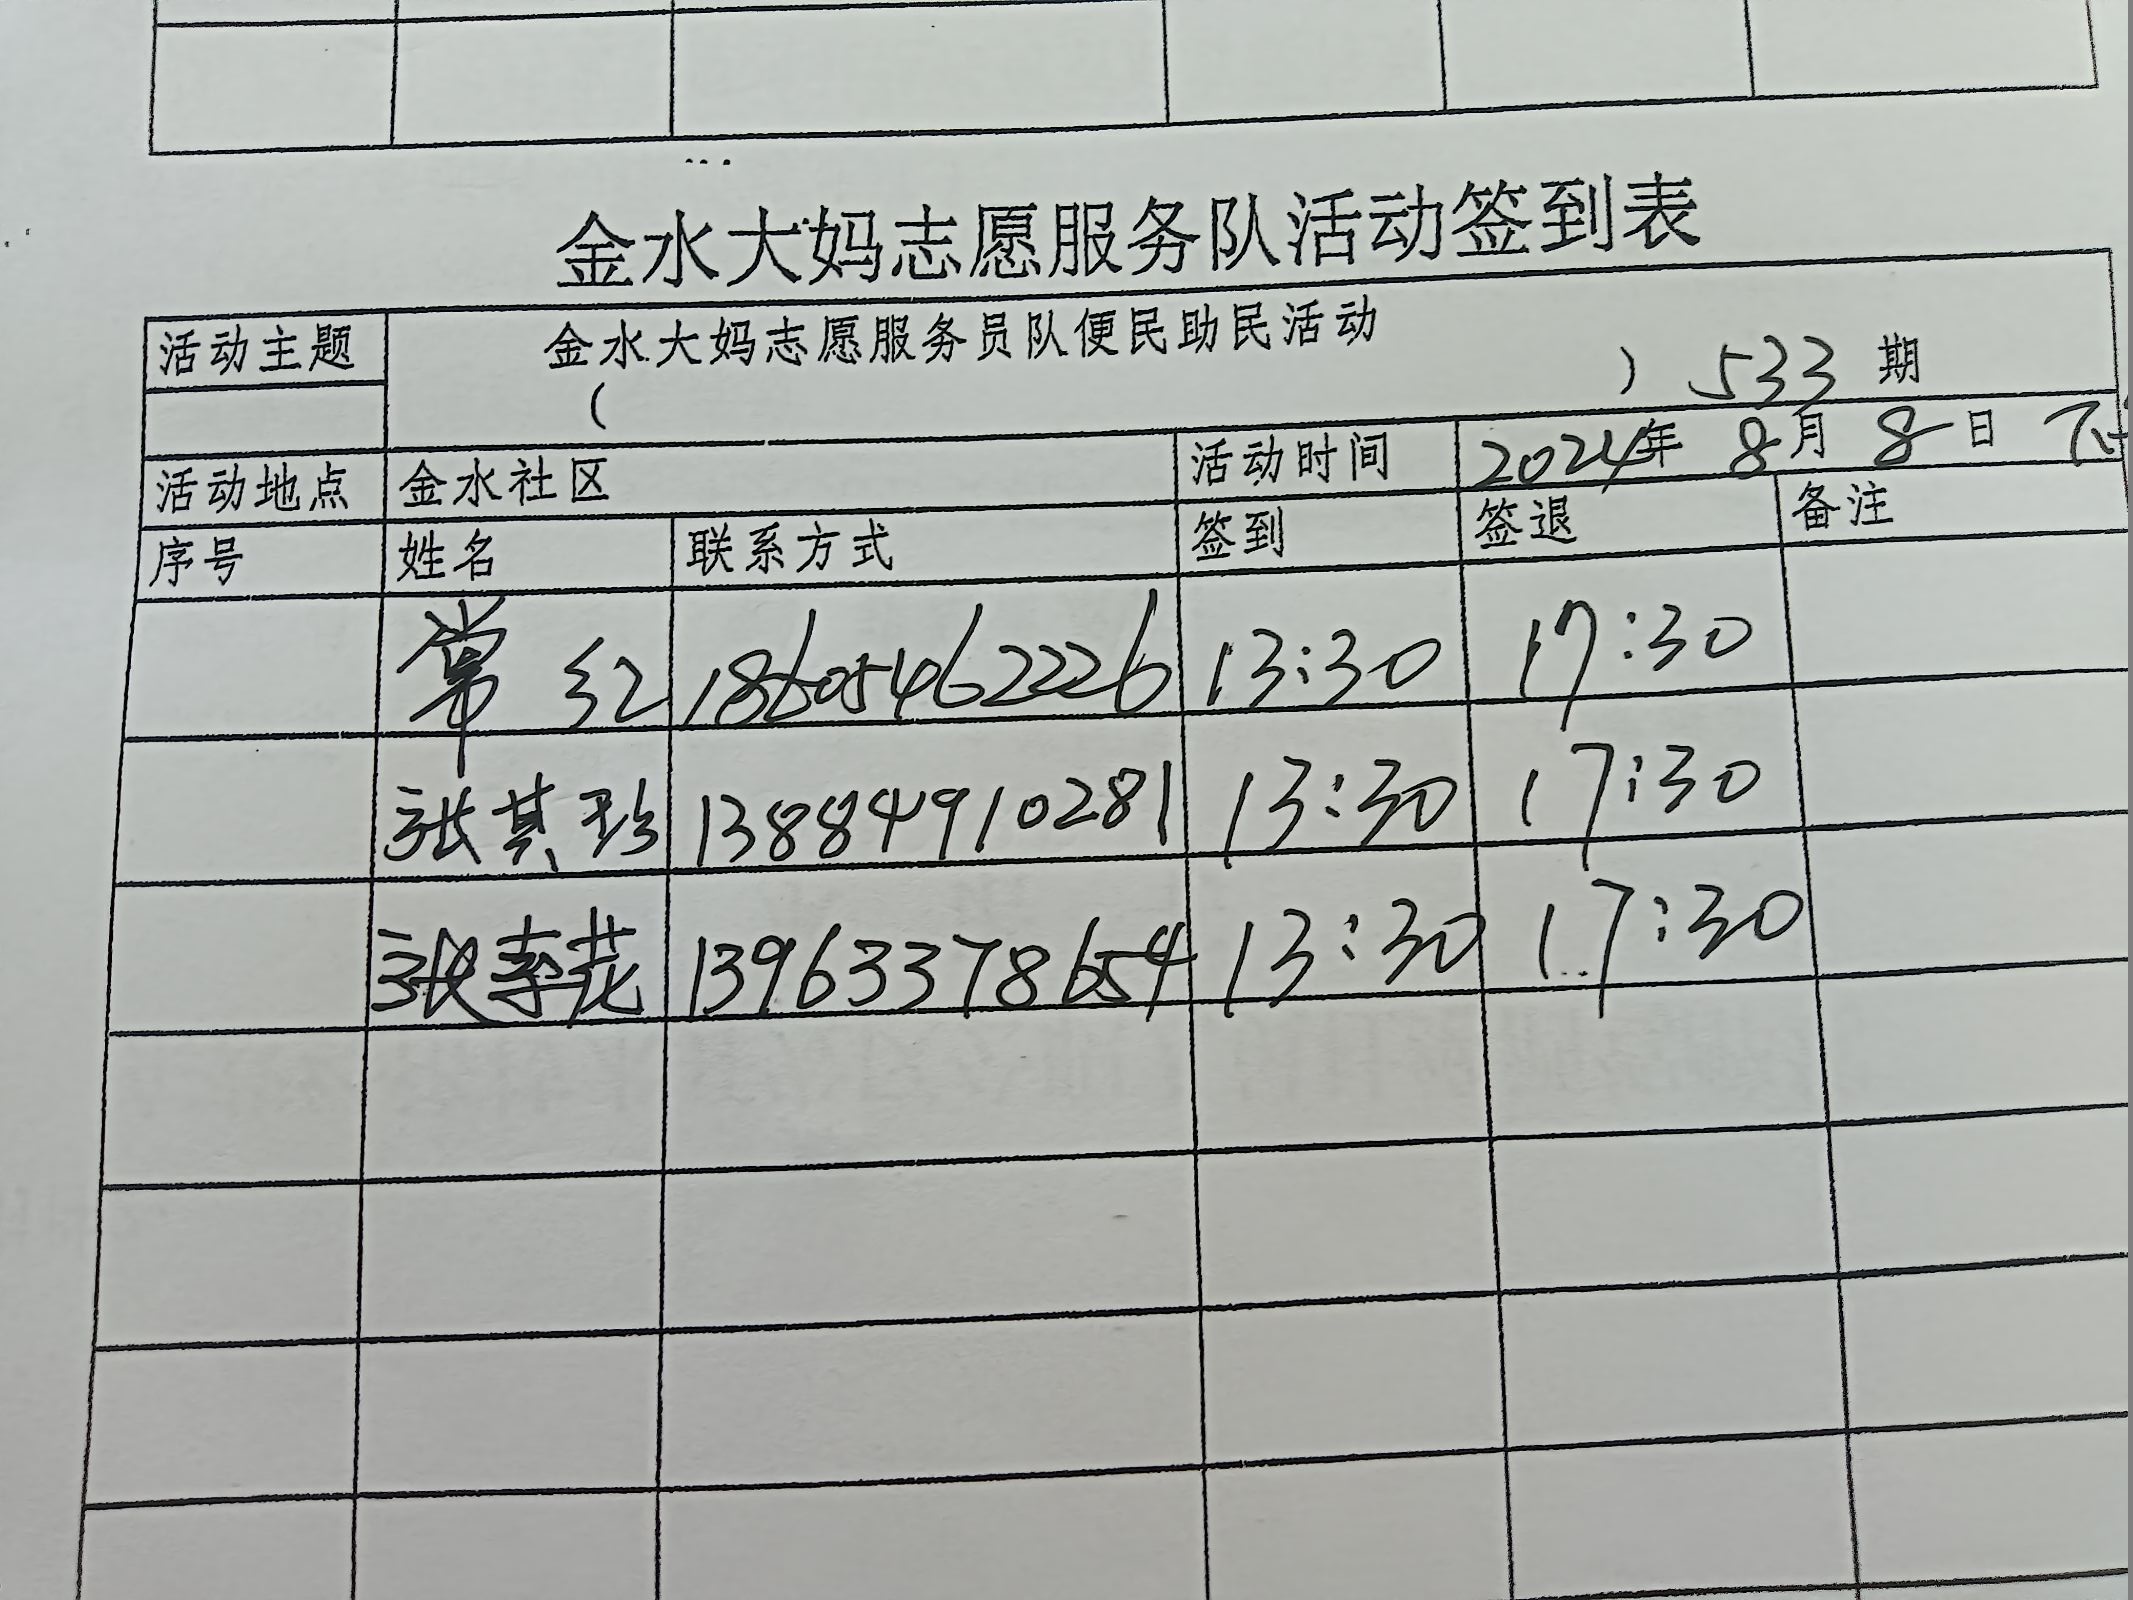 金水大妈志愿服务队活动签到表
活动主题 金水大妈志愿服务员队便民助民活动
( ) 533 期
活动地点 金水社区 活动时间 2024年 8月 8日 下
序号 姓名 联系方式 签到 签退 备注
常红 18605462226 13:30 17:30
张其珍 13884910281 13:30 17:30
张春花 13963378654 13:30 17:30